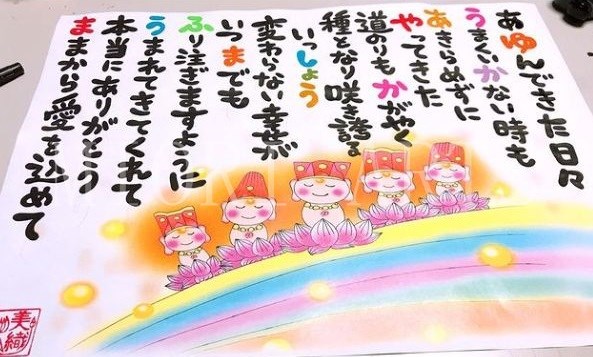 あゆんできた日々
うまくいかない時も
あきらめずに
やってきた
道のりもかがやく
種となり咲き誇る
いっしょう
変わらない幸せが
いつまでも
ふり注ぎますように
うまれてきてくれて
本当にありがとう
ままから愛を込めて
美織